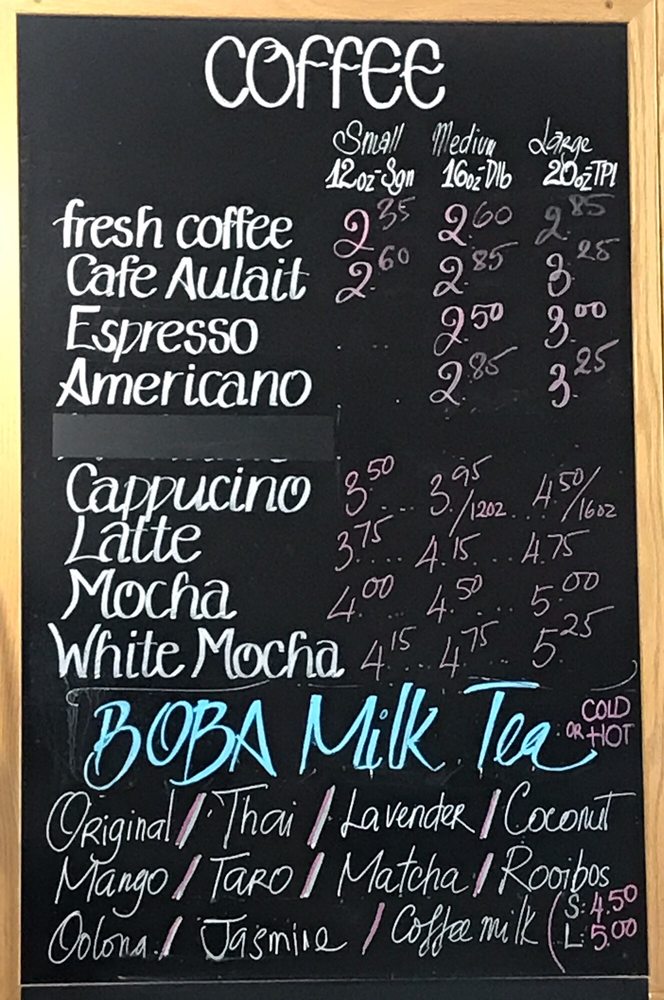 COFFEE
Small Medium Large
12oz-Sgn 16oz-Dlb 20oz-TPl
fresh coffee 2.35 2.60 2.85
Cafe Aulait 2.60 2.85 3.25
Espresso 2.50 3.00
Americano 2.85 3.25
Cappucino 3.50 .... 3.95/12oz ... 4.50/16oz
Latte 3.75 .... 4.15 .... 4.75
Mocha 4.00 ... 4.50 ... 5.00
White Mocha 4.15 ... 4.75 ... 5.25
BOBA Milk Tea COLD OR HOT
Original / Thai / Lavender / Coconut
Mango / TARO / Matcha / Rooibos
Oolong / Jasmine / Coffee milk ( S: 4.50
L: 5.00